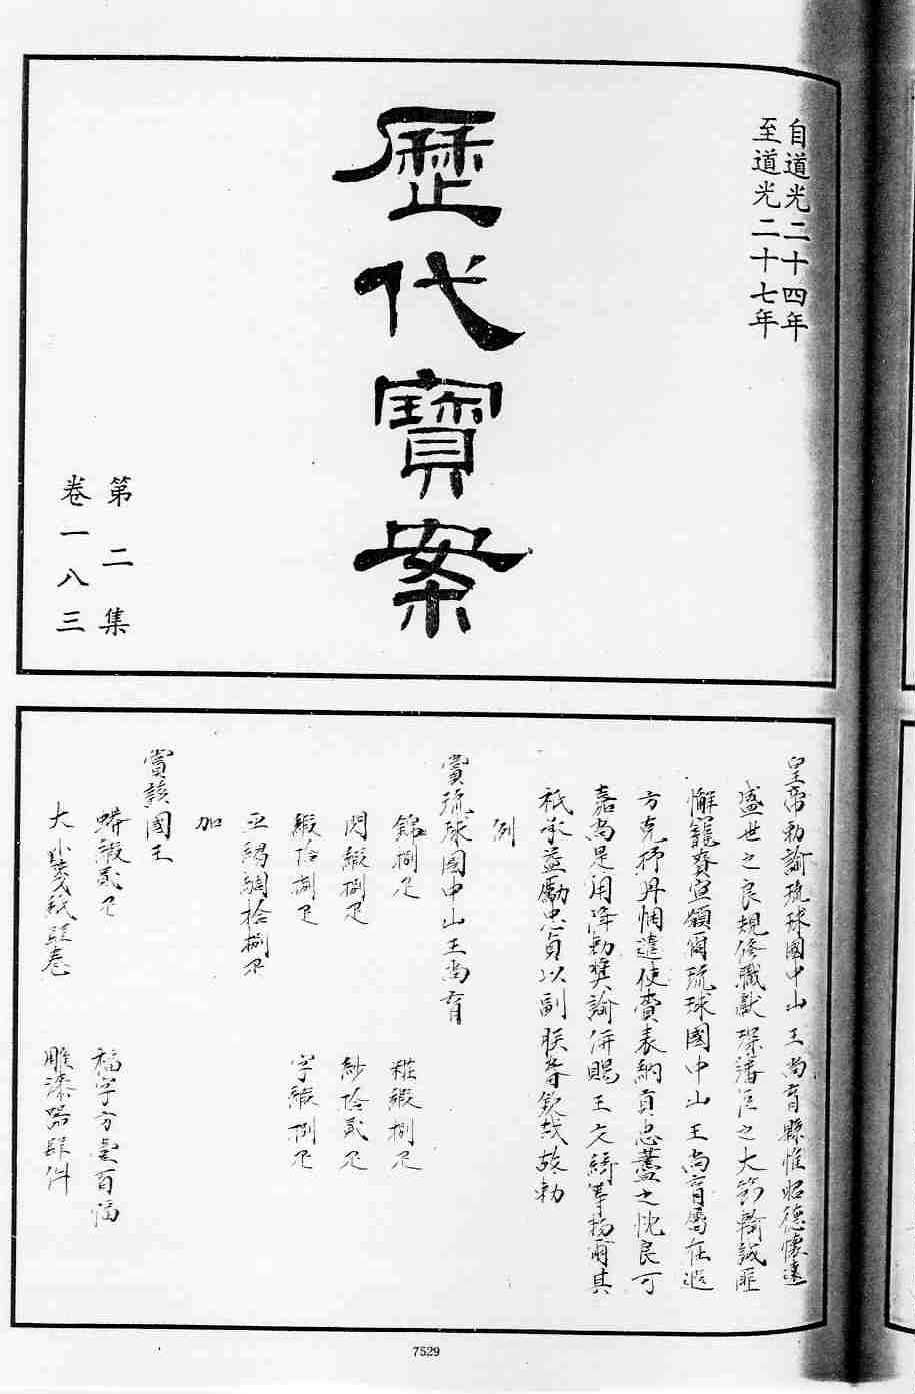 自道光二十四年
至道光二十七年
歷代寶案
第二集
卷一八三
皇帝勅諭琉球國中山王尚育朕惟昭德懷遠
盛世之良規修職獻琛藩臣之大節輸誠匪
懈寵賚宜頒爾琉球國中山王尚育屬在遐
方克抒丹悃遣使賫表納貢忠藎之忱良可
嘉尚是用降勅奬諭併賜王文綺等物爾其
祇承益勵忠貞以副朕眷欽哉故勅
例
賞琉球國中山王尚育
錦捌疋 粧緞捌疋
閃緞捌疋 紗拾貳疋
緞拾捌疋 字緞捌疋
綢拾捌疋
加
賞該國王
蟒緞貳疋 福字方壹百幅
大小 紙肆卷 雕漆器肆件
7529